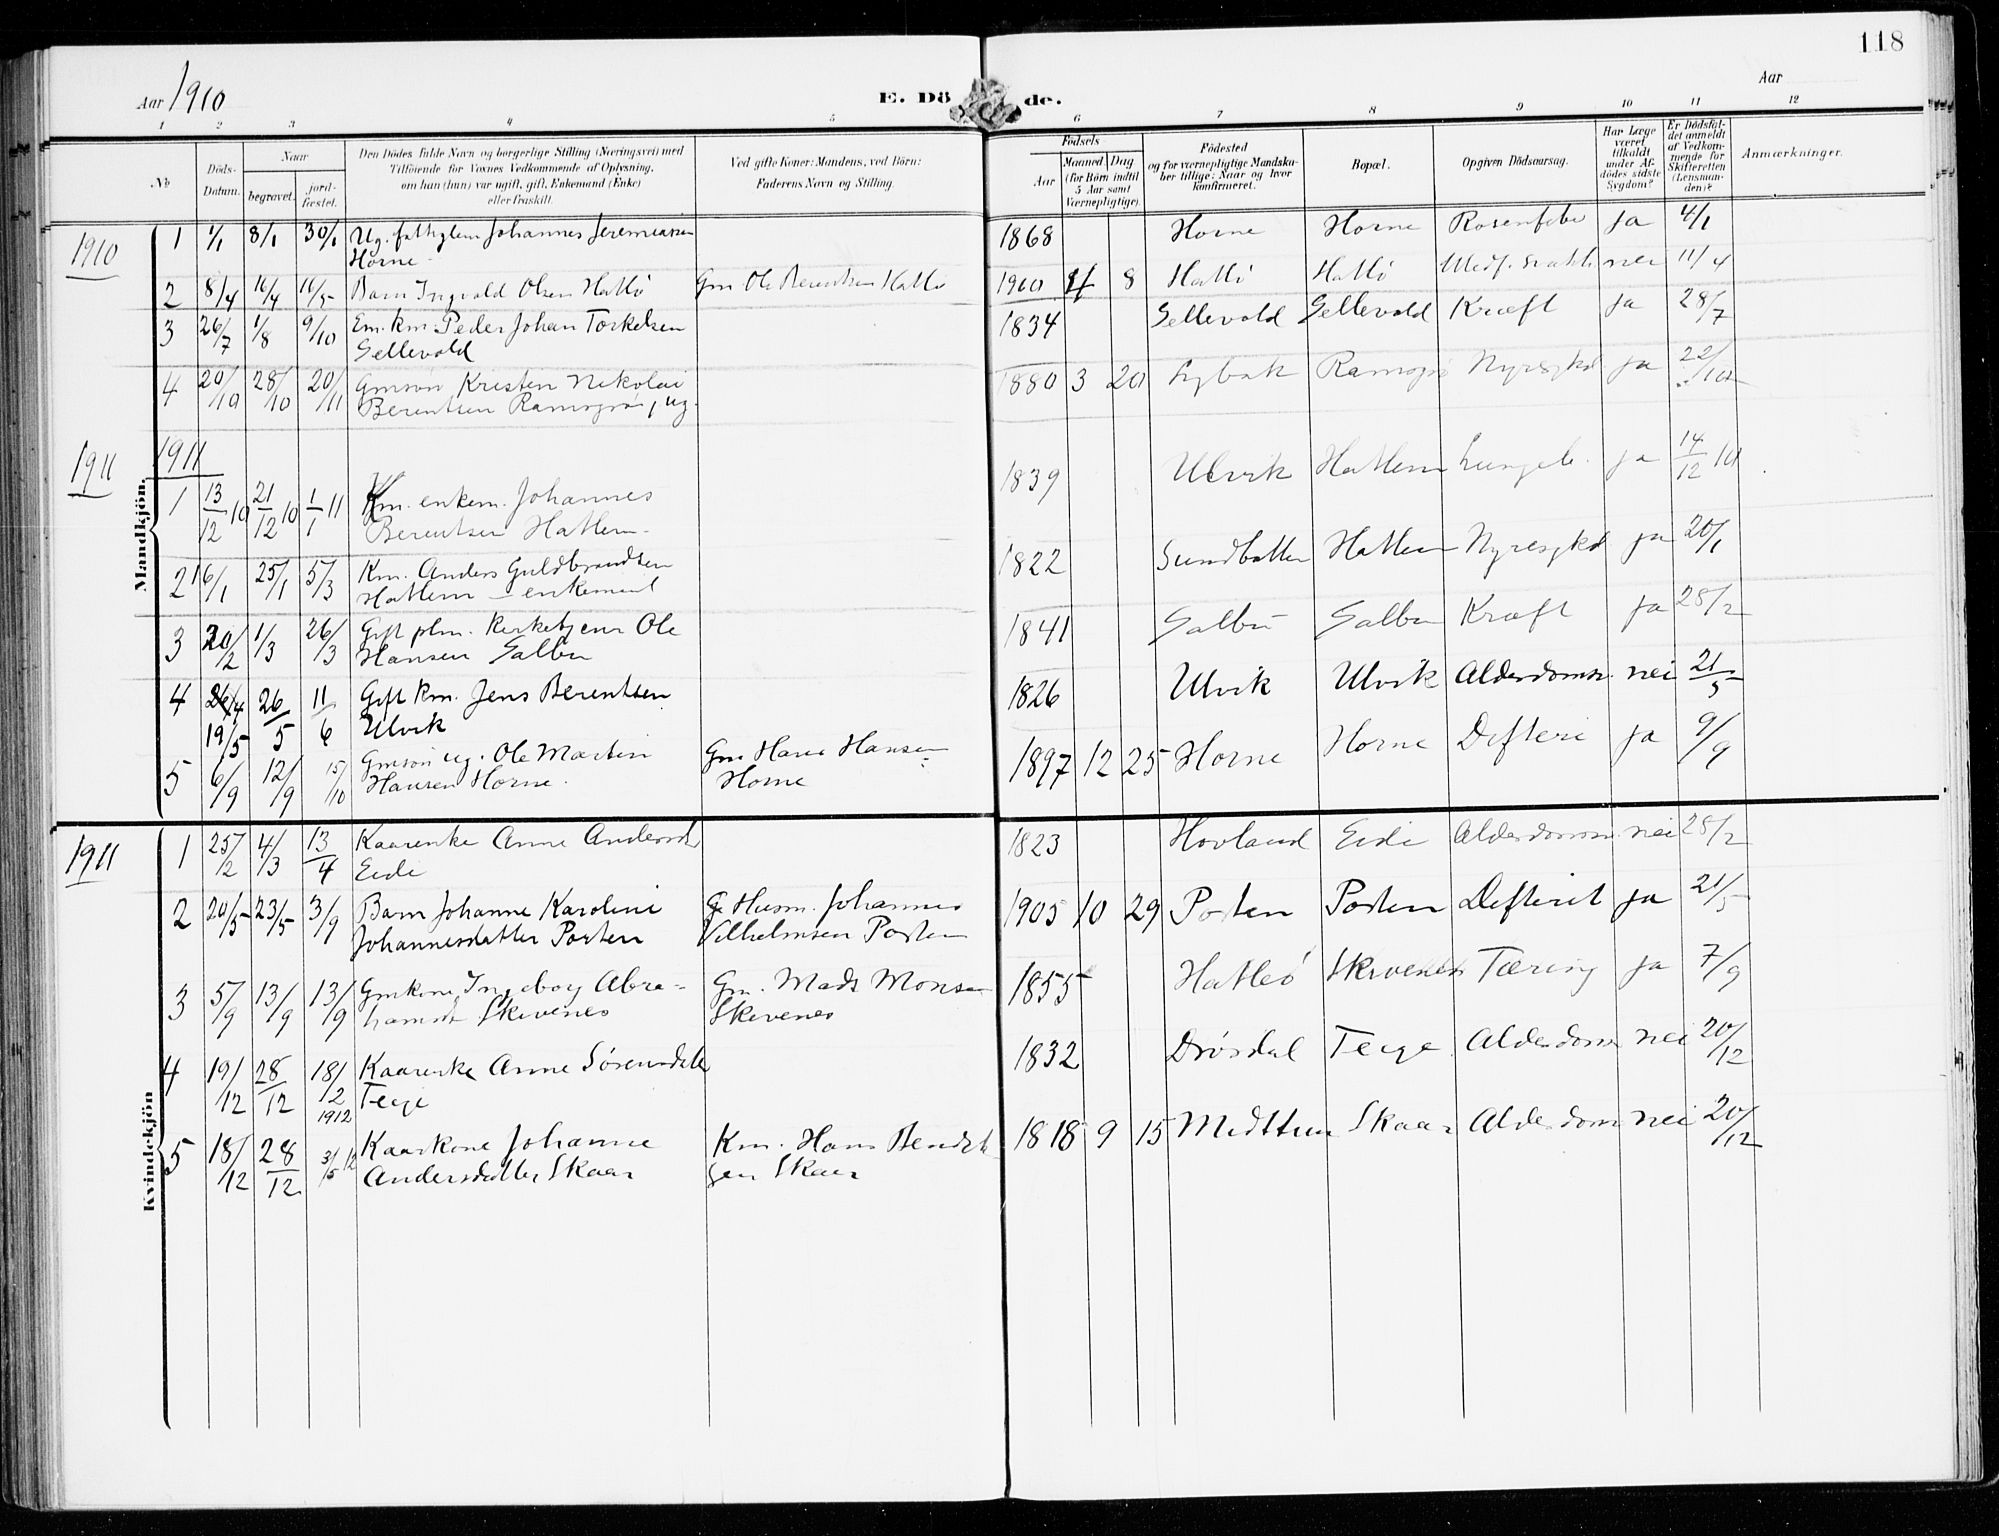 118
Aar 1910
E. Dö de.
Aar
1 2 3 4 5 6 7 8 9 10 11 12
№
Döds-Datum.
Naar
begravet.
jord-fæstet.
Den Dödes fulde Navn og borgerlige Stilling (Næringsvei) med
Tilföiende for Voxnes Vedkommende af Oplysning,
om han (hun) var ugift, gift, Enkemand (Enke)
eller fraskilt.
Ved gifte Koner: Mandens, ved Börn:
Faderens Navn og Stilling.
Födsels
Aar
Maaned Dag
(for Börn indtil
5 Aar samt
Værnepligtige).
Födested
og for værnepligtige Mandska-
ber tillige: Naar og hvor
konfirmeret.
Bopæl.
Opgiven Dödsaarsag.
Har Læge
været
tilkaldt
under Af-
dödes sidste
Sygdom?
Er Dödsfal-
det anmeldt
af Vedkom-
mende for
Skifteretten
(Lensman-
den)?
Anmærkninger.
Mandkjön.
1910
1 1/1 8/1 30/1 Ug. Johannes Jeremiassen 1868 Horne Horne Rosenfeber ja 4/1
Horne
2 8/4 16/4 16/5 Barn Ingvald Olsen Hatlö Gm Ole Berentsen Hatlö 1910 4 8 Hatlö Hatlö Medf. svakh nei 11/4
3 26/7 1/8 9/10 Em. km. Peder Johan Torkelsen 1834 Sellevold Sellevold Kræft ja 28/7
Sellevold
4 20/10 28/10 20/11 Gmsøn Kristen Nikolai 1880 3 20 Nyresykd ja 22/10
Berentsen ug.
1911 1911
1 13/12 10 21/12 10 1/1 11 Km. enkem. Johannes 1839 Ulvik Hatlem Lungeb. ja 14/12 10
Berentsen Hatlem
2 16/1 25/1 5/3 Km. Anders Guldbrandsen 1822 Sundbotten Hatlem Nyresykd ja 20/1
Hatlem - enkemand
3 20/2 1/3 26/3 Gift plm. kirketjener Ole 1841 Salbu Salbu Kræft ja 28/2
Hansen Salbu
4 26/4 26/5 11/6 Gift km. Jens Berentsen 1826 Ulvik Ulvik Alderdomss. nei 21/5
19/5 Ulvik
5 6/9 12/9 15/10 Gmsøn ug. Ole Martin Gm Hans Hansen 1897 12 25 Horne Horne Difteri ja 9/9
Hansen Horne. Horne
Kvindekjön
1911
1 25/2 4/3 13/4 Kaarenke Anne Andersd 1823 Hovland Eide Alderdomss nei 28/2
Eide
2 20/5 23/5 3/9 Barn Johanne Karoline G Husm. Johannes 1905 10 29 Porten Porten Difterit ja 21/5
Johannesdatter Porten Vilhelmsen Porten
3 5/9 13/9 13/9 Gmkone Ingeborg Abra- Gm. Mads Monsen 1855 Hatleö Skivenes Tæring ja 7/9
hamsd. Skivenes Skivenes
4 19/12 28/12 18/2 1912 Kaarenke Anne Sörensdatter 1832 Drösdal Teige Alderdoms nei 20/12
Teige
5 18/12 28/12 3/5 12 Kaarkone Johanne Km. Hans Bendik 1818 9 15 Midttun Skaar Alderdom nei 20/12
Andersdatter Skaar sen Skaar